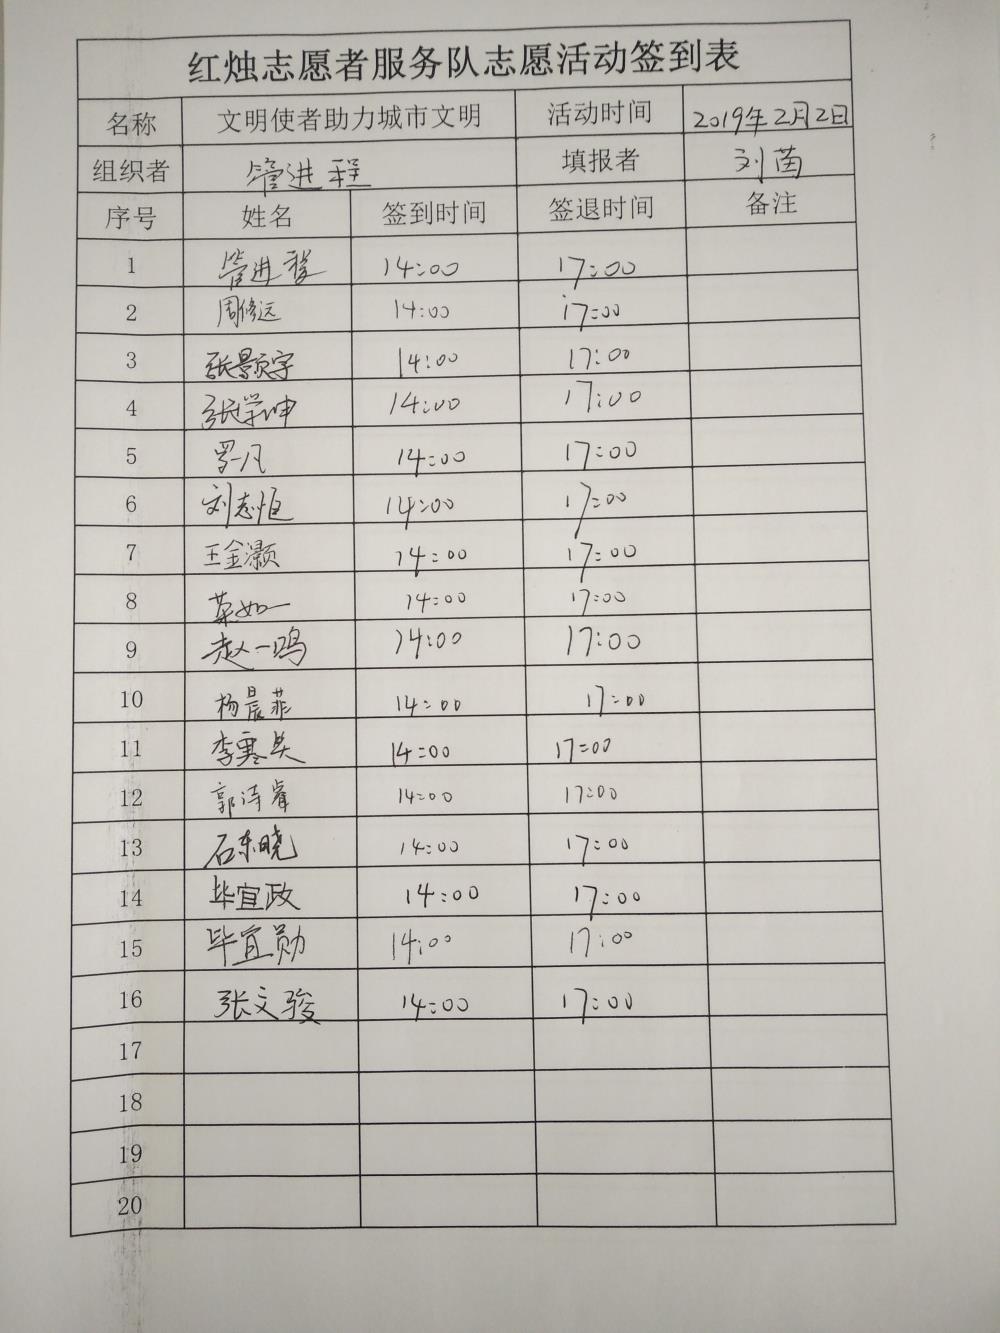 红烛志愿者服务队志愿活动签到表
名称 文明使者助力城市文明 活动时间 2019年2月2日
组织者 管进程 填报者 刘茵
序号 姓名 签到时间 签退时间 备注
1 管进程 14:00 17:00
2 周修远 14:00 17:00
3 张景颢宇 14:00 17:00
4 张学坤 14:00 17:00
5 罗一凡 14:00 17:00
6 刘志恒 14:00 17:00
7 王金灏 14:00 17:00
8 如一 14:00 17:00
9 赵一鸣 14:00 17:00
10 杨晨菲 14:00 17:00
11 李寒 14:00 17:00
12 郭诗睿 14:00 17:00
13 石东晓 14:00 17:00
14 毕宜政 14:00 17:00
15 毕宜勋 14:00 17:00
16 张文骏 14:00 17:00
17
18
19
20